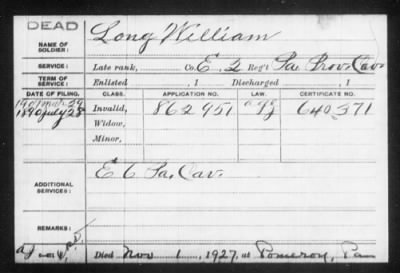 DEAD
NAME OF SOLDIER: Long William
SERVICE: Late rank, Co. E, 2 Reg't Pa. Prov. Cav.
TERM OF SERVICE: Enlisted , 1 Discharged , 1
DATE OF FILING. CLASS. APPLICATION NO. LAW. CERTIFICATE NO.
1890 July 28 Invalid, 862 951 640,371
Widow,
Minor,
ADDITIONAL SERVICES: E 6 Pa. Cav.
REMARKS:
Died Nov 1, 1927, at Pomeroy, Pa